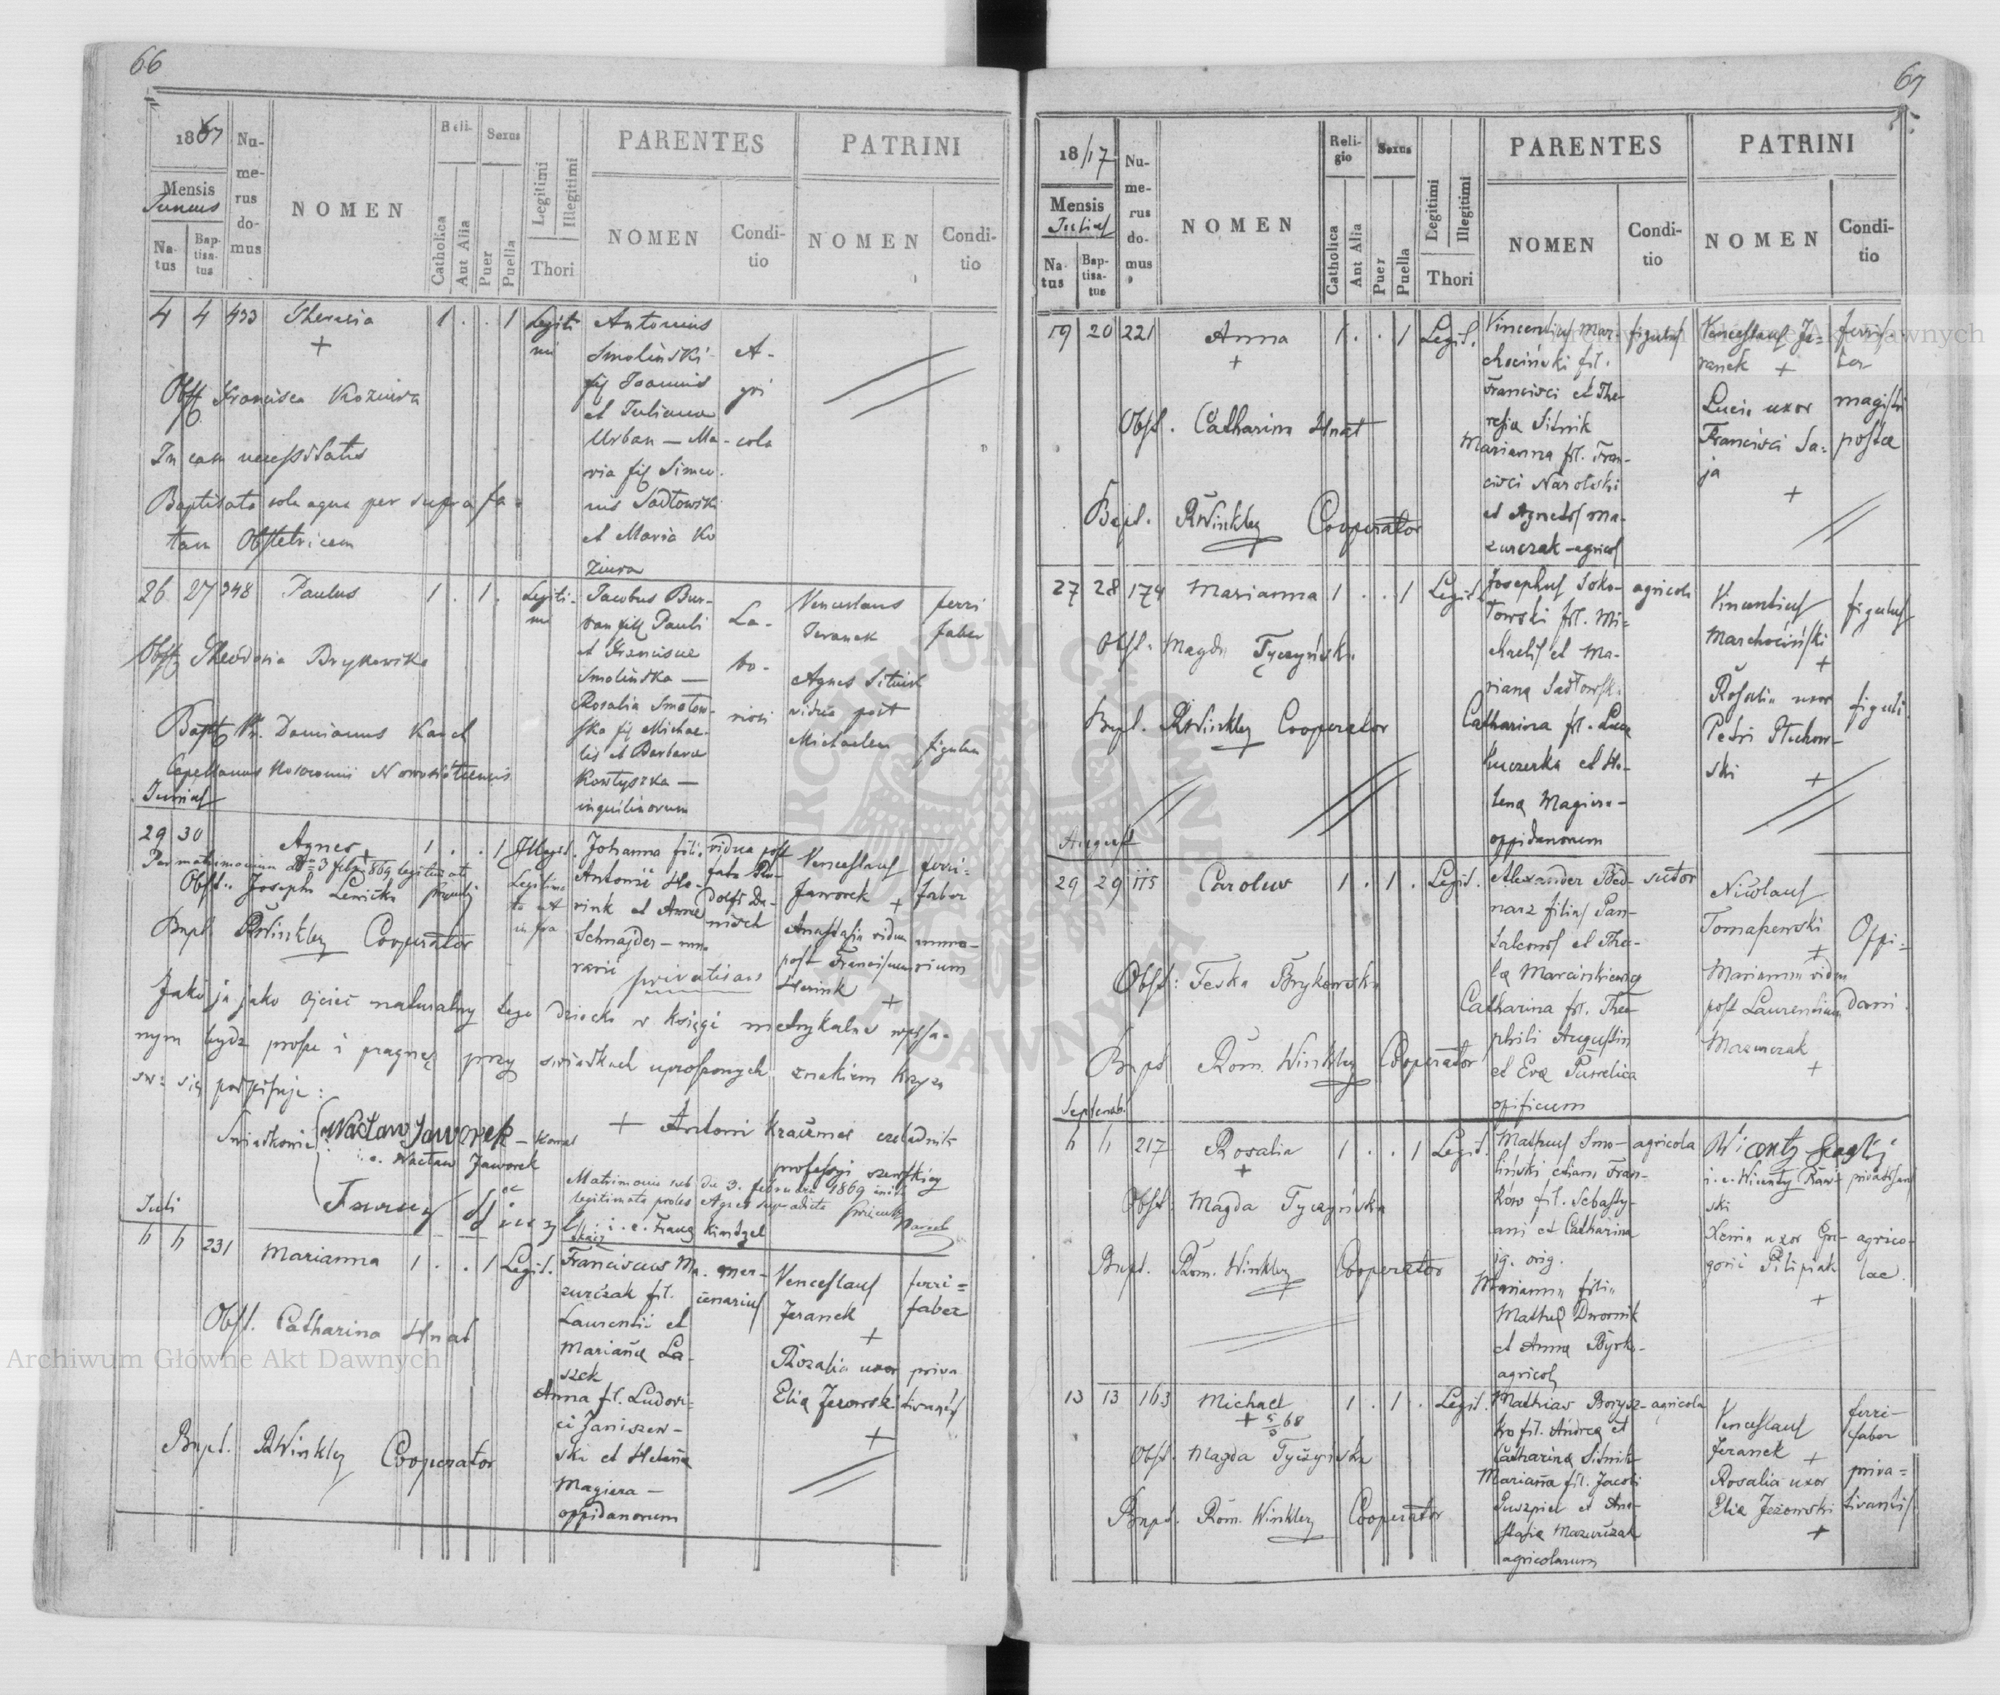 66
1867
Mensis
Junius
Na-
tus
Bap-
tisa-
tus
Nu-
me-
rus
do-
mus
NOMEN
Reli-
Catholica
Aut Alia
Sexus
Puer
Puella
Legitimi
Illegitimi
Thori
PARENTES
NOMEN
Condi-
tio
PATRINI
NOMEN
Condi-
tio
4 4 433 Theresia 1 . . 1 Legiti
mi
+
Obst Francisca Koziura
In casu necessitatis
Baptisata sola aqua per supra fa-
tam Obstetricem
Antonius
Smoliński
fil Joannis
et Julianna
Urban — Ma-
ria fil Simeo-
nis Sadłowski
et Maria Ko
ziura
A-
gri
cola
26 27 348 Paulus 1 . 1 . Legiti-
mi
Obst Theodosia Brykowska
Bapt Damianus
Capellanus
Junius
Jacobus Bur-
ban fil Pauli
et Francisca
Smolińska —
Rosalia Smolow-
ska fil Michae-
lis et Barbara
Kostyszka —
inquilinorum
La-
bo-
riosi
Venceslaus
Jeranek
Agnes Sitnik
vidua post
Michaelem
ferri
faber
figulum
29 30 Agnes + 1 . . 1 Illegit.
Per matrimonium dto 3 febr 1869 legitimata
Obst. Josepha Lewicka
Bapt RWinkler Cooperator
Legitima
ta ut
infra
Johanna filia
Antonii Ho-
rink et Anna
Schnajder — mu-
rarii privatisans
vidua post
fata Ru-
dolfi Da-
nisch
Venceslaus
Jaworek +
Anastasia vidua
post Franciscum
Horink +
ferri-
faber
mura-
rium
Jako ja jako ojciec naturalny tego dziecka w księgi metrykalne wpisa-
nym bydz proszę i pragnę przy swiadkach uproszonych znakiem krzyża
sw: się podpisuje:
Swiadkowie Wacław Jaworek — kowal
i. e. Wacław Jaworek
+ Antoni czeladnik
professyi szewskiey
Matrimonio sub die 3. februarii 1869 inito
legitimata proles Agnes supradicta
i. e. Franz Kindzel
Juli
231 Marianna 1 . . 1 Legit.
Obst. Catharina Hnat
Bapt. RWinkler Cooperator
Franciscus Ma-
zurczak fil.
Laurentii et
Marianna La-
szek
Anna fil. Ludovi-
ci Janiszew-
ski et Helena
Magiera —
oppidanorum
mer-
cenarius
Venceslaus
Jeranek
+
Rozalia uxor
Elia Jezowski
+
ferri=
faber
priva
tivantis
67
18/17
Mensis
Julius
Na-
tus
Bap-
tisa-
tus
Nu-
me-
rus
do-
mus
NOMEN
Reli-
gio
Catholica
Ant Alia
Sexus
Puer
Puella
Legitimi
Illegitimi
Thori
PARENTES
NOMEN
Condi-
tio
PATRINI
NOMEN
Condi-
tio
19 20 221 Anna 1 . . 1 Legit.
+
Obst. Catharina Hnat
Bapt. RWinkler Cooperator
Vincentius Mar-
chociński fil.
Francisci et The-
resia Sitnik
Marianna fil. Fran-
cisci Narolski
et Agnetis Ma-
zurczak — agricol
figulus
Venceslaus Je-
ranek +
Lucia uxor
Francisci Sa-
ja
+
ferrifa
ber
magistri
postae
27 28 174 Marianna 1 . . 1 Legit.
Obst. Magda Tyczyńska
Bapt. RWinkler Cooperator
Josephus Soko-
łowski fil. Mi-
chaelis et Ma-
rianna Sadłowski
Catharina fil. Luca
Kuczerka et He-
lena Magiera —
oppidanorum
agricola
Vincentius
Marchociński
+
Rosalia uxor
Petri Stuchow-
ski +
figulus
figuli
August
29 29 115 Carolus 1 . 1 . Legit.
Obst: Teska Brykowska
Bapt Rom. Winkler Cooperator
Alexander Bed-
narz filius Pan-
talconis et The-
kla Marcinkiewicz
Catharina fil. Theo-
phili Augustin
et Eva Pustelica
opificum
sutor
Nicolaus
Tomaszewski
+
Marianna vidua
post Laurentium
Mazurczak
+
Oppi=
dani.
Septemb.
217 Rosalia 1 . . 1 Legit.
+
Obst: Magda Tyczyńska
Bapt. Rom. Winkler Cooperator
Matheus Smo-
liński etiam Fran-
kow fil. Sebasty-
ani et Catharina
ig. orig.
Marianna filia
Mathei Dwornik
et Anna Byrk-
agricol
agricola
i. e. Wicenty Raw-
ski
Xenia uxor Gre-
gorii Pilipiak
+
privatisans
agrico-
lae.
13 13 163 Michael 1 . 1 . Legit.
+ 5/5 68
Obst. Magda Tyczyńska
Bapt. Rom. Winkler Cooperator
Mathias Borysz-
ko fil. Andrea et
Catharina Sitnik
Marianna fil. Jacobi
Puszpiel et Ana-
stasia Mazurczak
agricolarum
agricola
Venceslaus
Jeranek +
Rosalia uxor
Elia Jezowski
+
ferri-
faber
priva=
tivantis.
Archiwum Główne Akt Dawnych
Archiwum Główne Akt Dawnych
ARCHIWUM GŁÓWNE AKT DAWNYCH